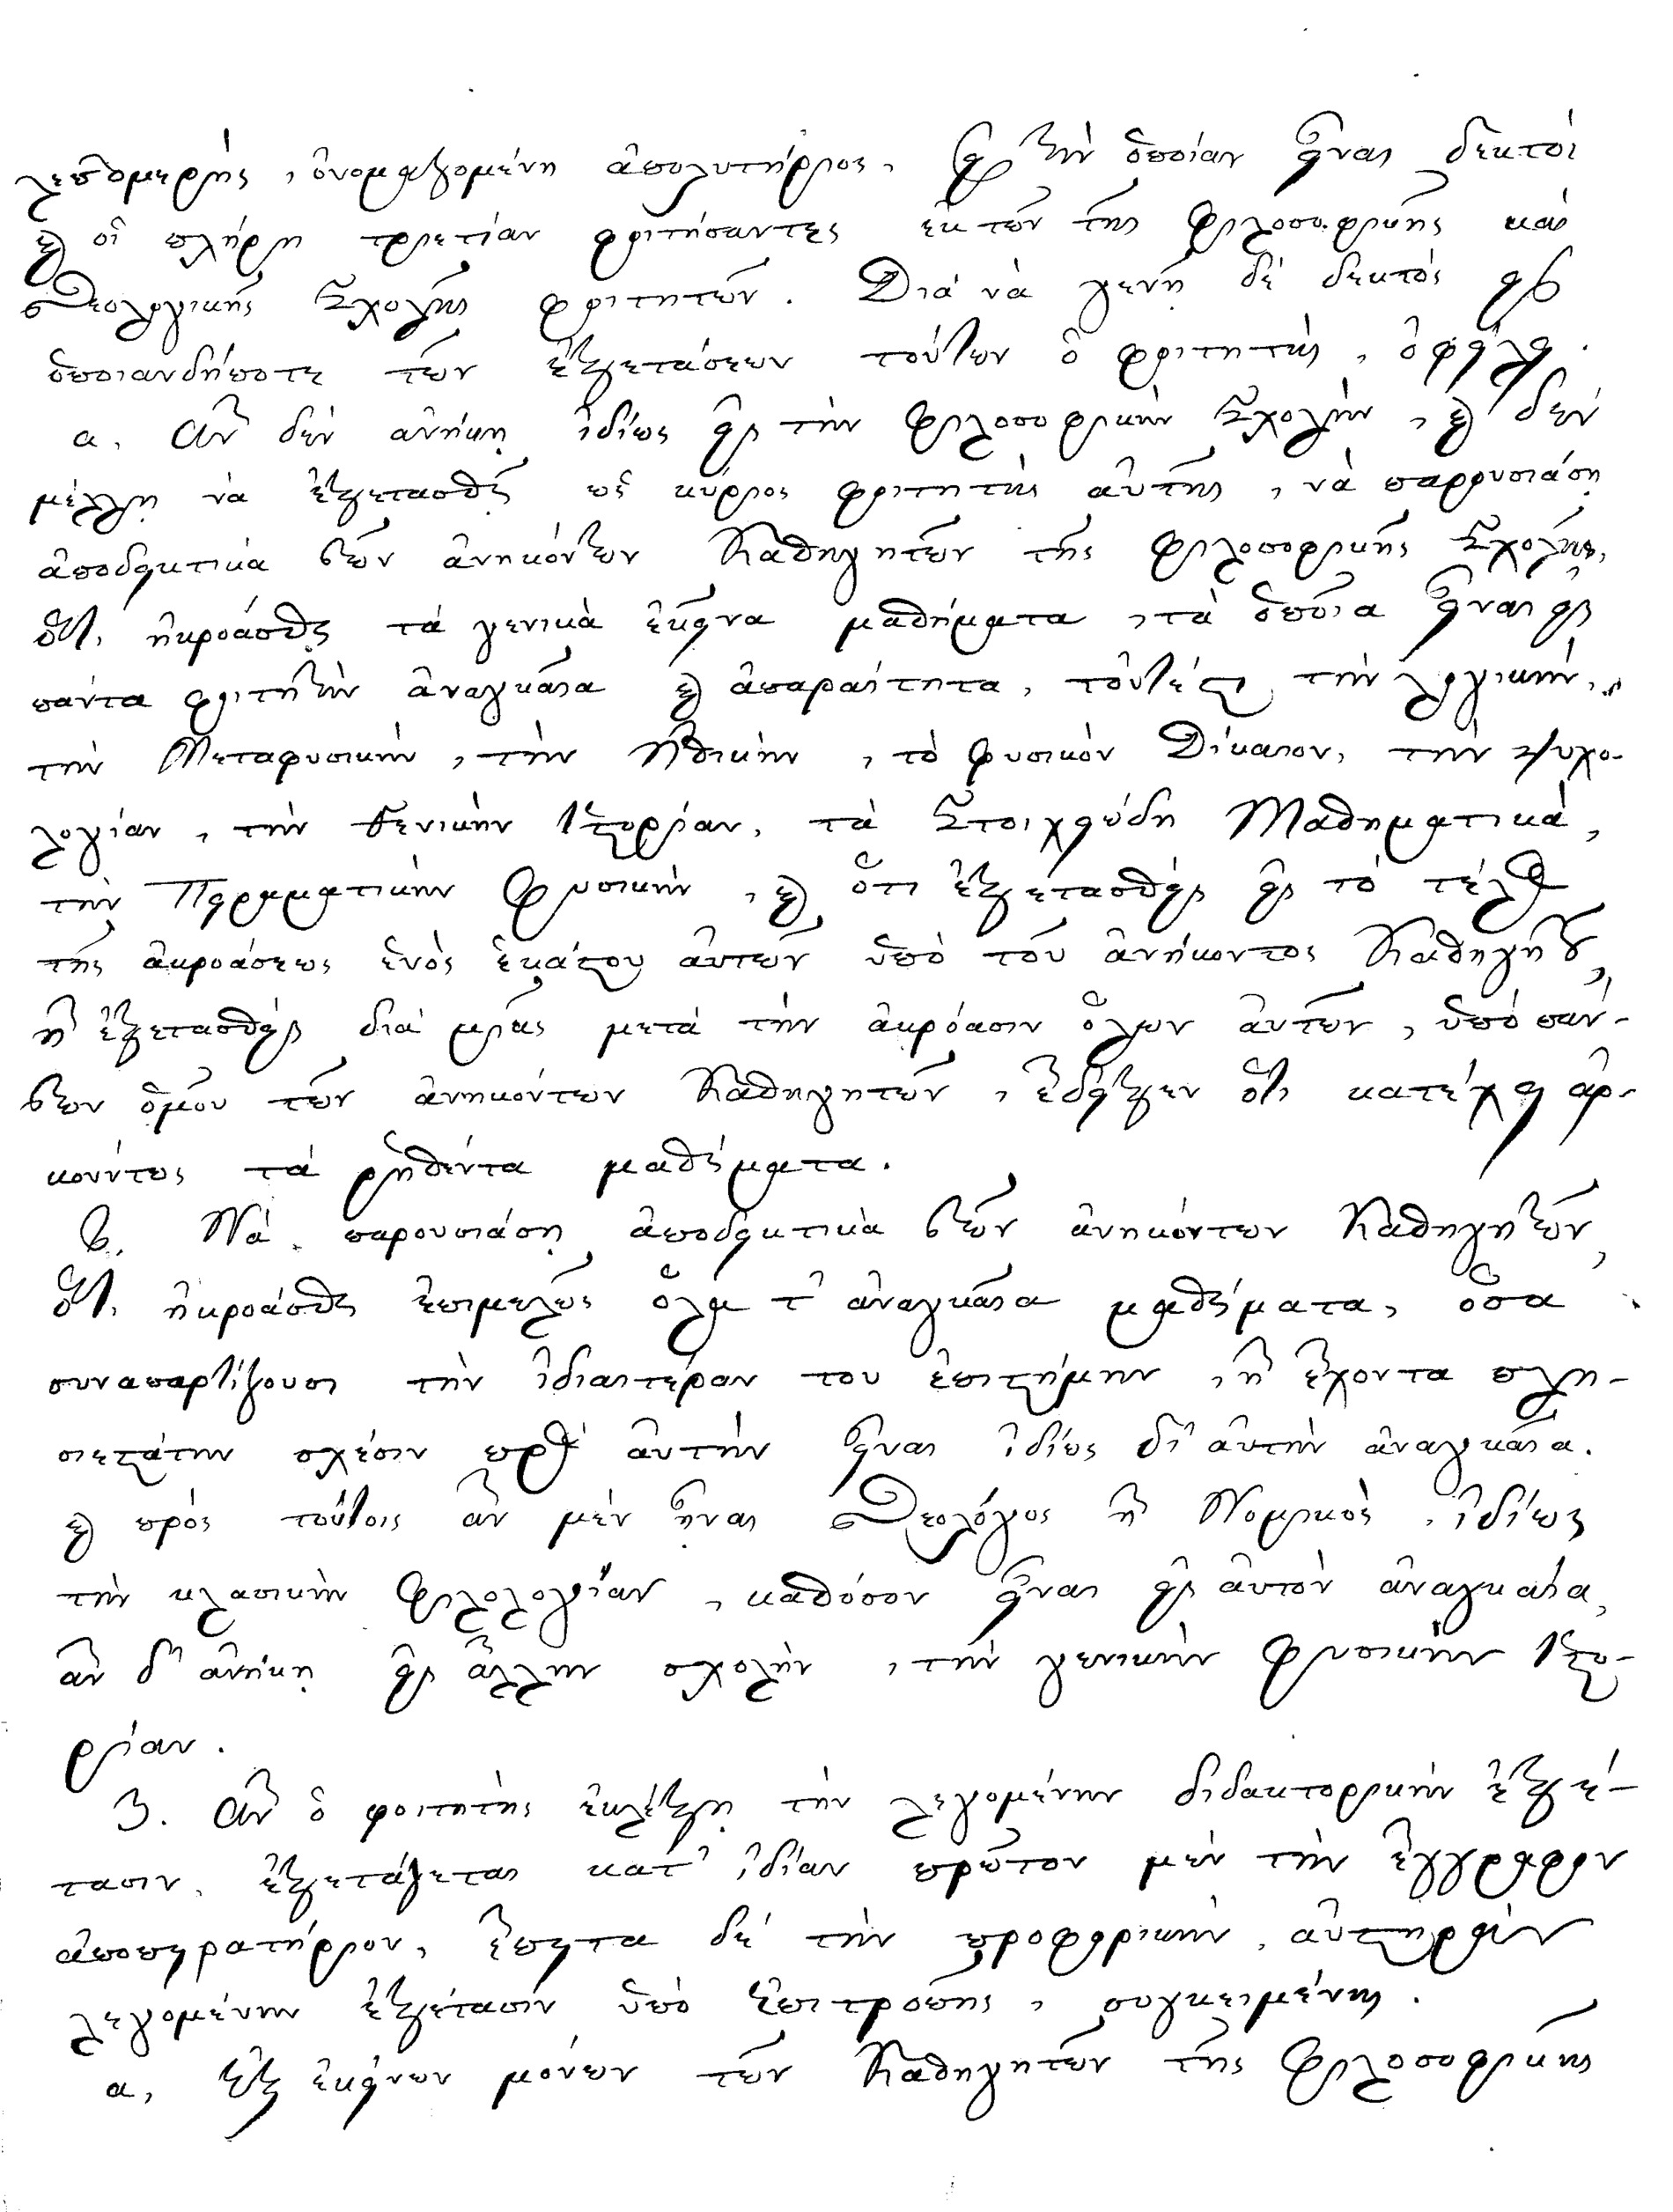 λεπτομερής, ὀνομαζομένη ἀπολυτήριος, εἰς τὴν ὁποίαν εἶναι δεκτοὶ
καὶ οἱ πλήρη τριετίαν φοιτήσαντες ἐκ τῶν τῆς φιλοσοφικῆς καὶ
Θεολογικῆς Σχολῆς φοιτητῶν. Διὰ νὰ γενῇ δὲ δεκτὸς εἰς
ὁποιανδήποτε τῶν ἐξετάσεων τούτων ὁ φοιτητὴς, ὀφείλει.
α, Ἂν δὲν ἀνήκῃ ἰδίως εἰς τὴν φιλοσοφικὴν Σχολὴν, καὶ δὲν
μέλλῃ νὰ ἐξετασθῇ ὡς κύριος φοιτητὴς αὐτῆς, νὰ παρουσιάσῃ
ἀποδεικτικὰ τῶν ἀνηκόντων Καθηγητῶν τῆς φιλοσοφικῆς Σχολῆς,
ὅτι ἠκροάσθη τὰ γενικὰ ἐκεῖνα μαθήματα, τὰ ὁποῖα εἶναι εἰς
πάντα φοιτητὴν ἀναγκαῖα καὶ ἀπαραίτητα, τουτέστι τὴν λογικὴν,
τὴν Μεταφυσικὴν, τὴν Ἠθικὴν, τὸ φυσικὸν Δίκαιον, τὴν ψυχο-
λογίαν, τὴν Γενικὴν Ἱστορίαν, τὰ Στοιχειώδη Μαθηματικὰ,
τὴν Πειραματικὴν Φυσικὴν, καὶ ὅτι ἐξετασθεὶς εἰς τὸ τέλος
τῆς ἀκροάσεως ἑνὸς ἑκάστου αὐτῶν ὑπὸ τοῦ ἀνήκοντος Καθηγητοῦ,
ἢ ἐξετασθεὶς διὰ μιᾶς μετὰ τὴν ἀκρόασιν ὅλων αὐτῶν, ὑπὸ πάν-
των ὁμοῦ τῶν ἀνηκόντων Καθηγητῶν, ἔδειξεν ὅτι κατέχει ἀρ-
κούντως τὰ ῥηθέντα μαθήματα.
β. Νὰ παρουσιάσῃ ἀποδεικτικὰ τῶν ἀνηκόντων Καθηγητῶν,
ὅτι ἠκροάσθη ἐπιμελῶς ὅλα τ' ἀναγκαῖα μαθήματα, ὅσα
συναπαρτίζουσι τὴν ἰδιαιτέραν του ἐπιστήμην, ἢ ἔχοντα πλη-
σιεστάτην σχέσιν πρὸς αὐτὴν εἶναι ἰδίως δι' αὐτὴν ἀναγκαῖα.
καὶ πρὸς τούτοις ἂν μὲν ἦναι Θεολόγος ἢ Νομικὸς, ἰδίως
τὴν κλασικὴν Φιλολογίαν, καθόσον εἶναι εἰς αὐτὸν ἀναγκαία,
ἂν δ' ἀνήκῃ εἰς ἄλλην σχολὴν, τὴν γενικὴν φυσικὴν Ἱστο-
ρίαν.
3. Ἂν ὁ φοιτητὴς ἐκλέξῃ τὴν λεγομένην διδακτορικὴν ἐξέ-
τασιν, ἐξετάζεται κατ' ἰδίαν πρῶτον μὲν τὴν ἔγγραφον
ἀποπειρατήριον, ἔπειτα δὲ τὴν προφορικὴν, αὐστηρὰν
λεγομένην ἐξέτασιν ὑπὸ ἐπιτροπῆς, συγκειμένης.
α, Ἐξ ἐκείνων μόνων τῶν Καθηγητῶν τῆς Φιλοσοφικῆς